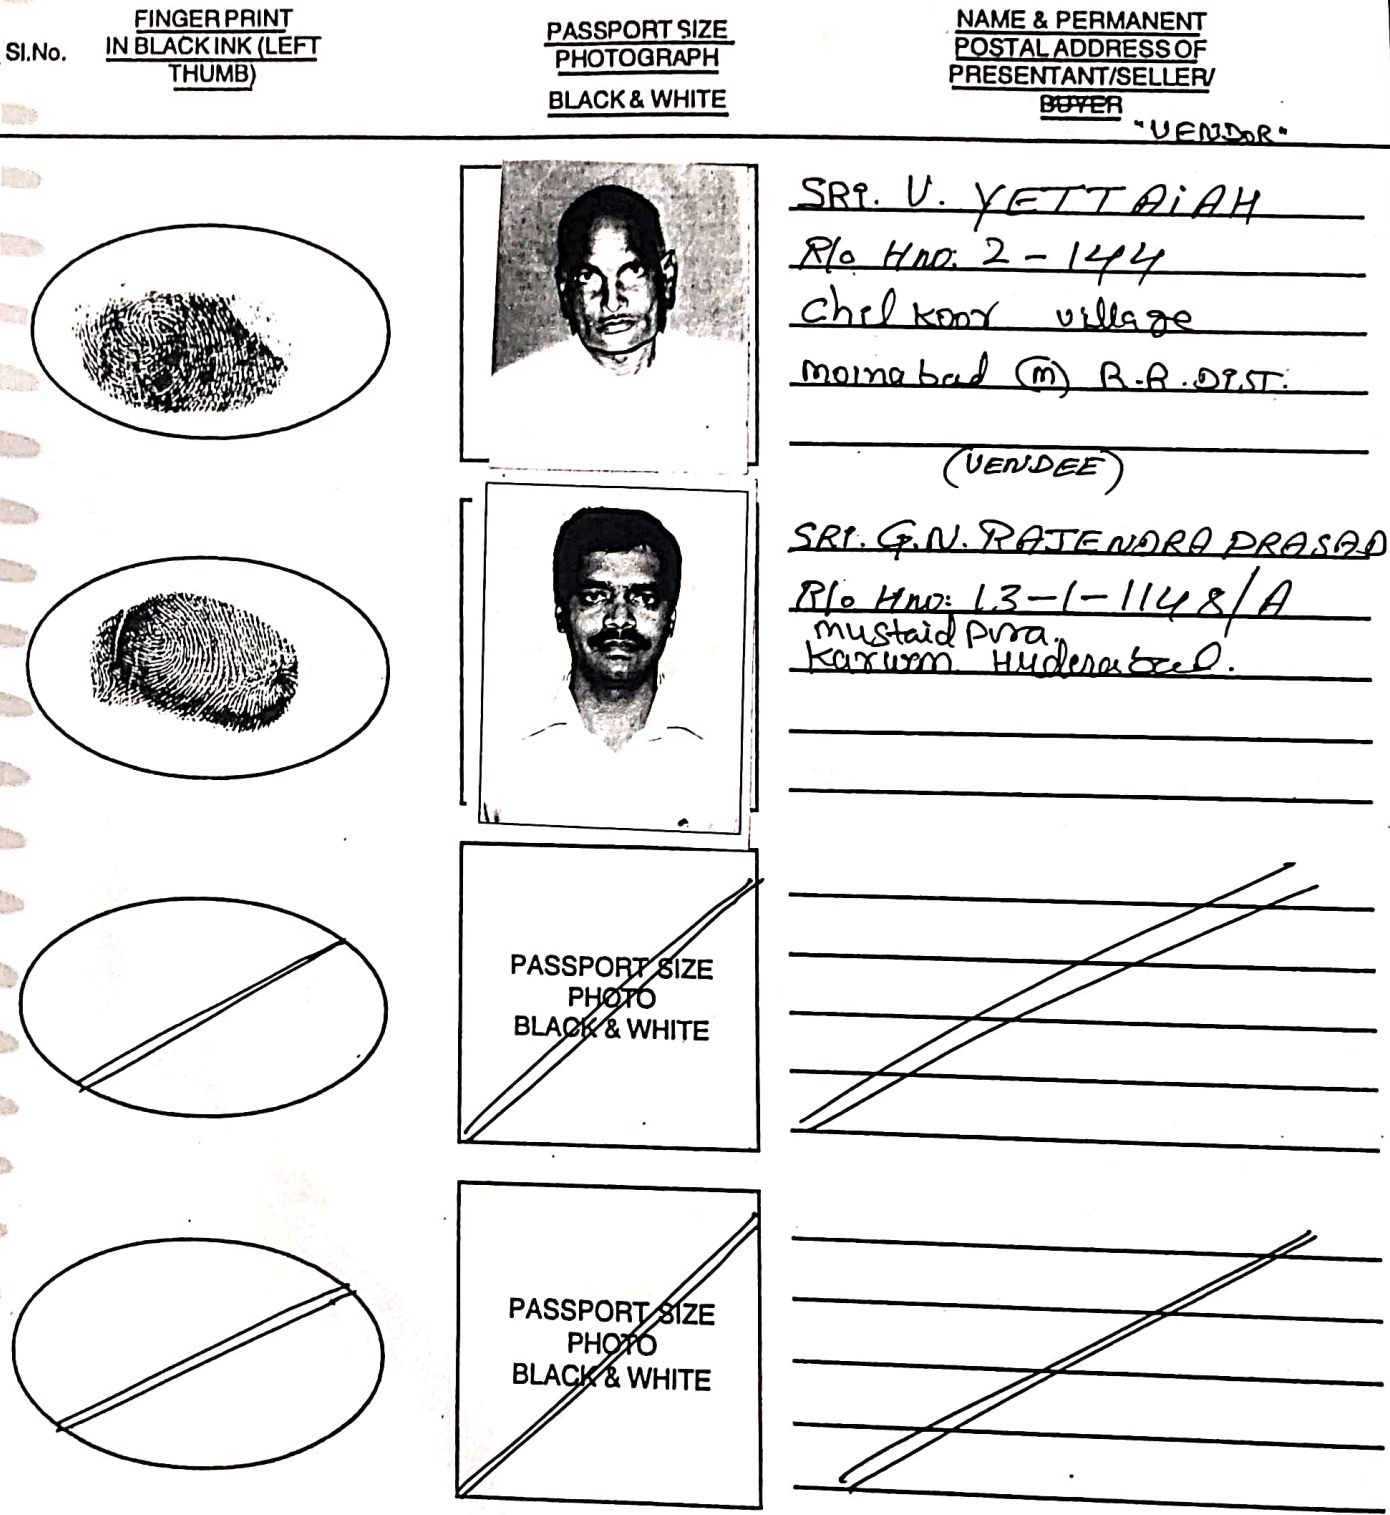 Sl.No.
FINGER PRINT
IN BLACK INK (LEFT
THUMB)
PASSPORT SIZE
PHOTOGRAPH
BLACK & WHITE
NAME & PERMANENT
POSTAL ADDRESS OF
PRESENTANT/SELLER/
BUYER
"VENDOR"
SRI. V. YETTAiAH
R/o Hno: 2-144
Chilkoor village
moinabad (m) R.R.DIST.
(VENDEE)
SRI. G.N. RAJENDRA PRASAD
R/o Hno: 13-1-1148/A
mustaidpura.
Karwan Hyderabad.
PASSPORT SIZE
PHOTO
BLACK & WHITE
PASSPORT SIZE
PHOTO
BLACK & WHITE